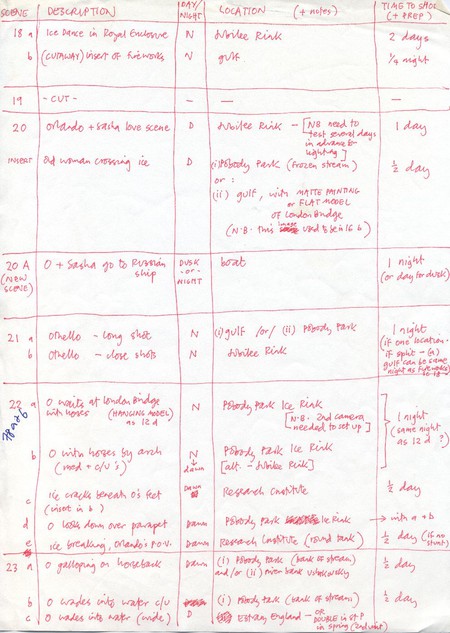 SCENE DESCRIPTION DAY/NIGHT LOCATION (+ notes) TIME TO SHOOT (+ PREP)
18 a Ice Dance in Royal Enclosure N Jubilee Rink 2 days
b (CUTAWAY) insert of fireworks N gulf 1/4 night
19 - CUT - — —
20 Orlando + Sasha love scene D Jubilee Rink - [NB need to test several days in advance for lighting] 1 day
INSERT Old woman crossing ice D (i) Pobody Park (frozen stream) 1/2 day
or:
(ii) gulf, with MATTE PAINTING
or FLAT MODEL
of London Bridge
(N.B. this image used to be in 16 b)
20 A (NEW SCENE) O + Sasha go to Russian ship DUSK -or- NIGHT boat 1 night (or day for dusk)
21 a Othello - long shot N (i) gulf /or/ (ii) Pobody Park 1 night (if one location -
b Othello - close shots N Jubilee Rink if split - (a) gulf can be same night as fireworks
22 a O waits at London Bridge with horses (HANGING MODEL) as 12 d N Pobody Park Ice Rink [N.B. 2nd camera needed to set up] 1 night (same night as 12 d ?)
78 a + b
b O with horses by arch (med + c/u's) N ↓ dawn Pobody Park Ice Rink [alt - Jubilee Rink]
c Ice cracks beneath O's feet (insert in b) Dawn Research Institute 1/2 day
d O looks down over parapet Dawn Pobody Park Ice Rink → with a + b
e Ice breaking, Orlando's P.O.V. Dawn Research Institute (round tank) 1/2 day (if no stunt)
23 a O galloping on horseback Dawn (i) Pobody Park (bank of stream) and/or (ii) river bank 1/2 day
b O wades into water c/u (i) Pobody Park (bank of stream) 1/2 day
c O wades into water (wide) D Estuary, England - OR DOUBLE in St. P in spring (2nd unit)